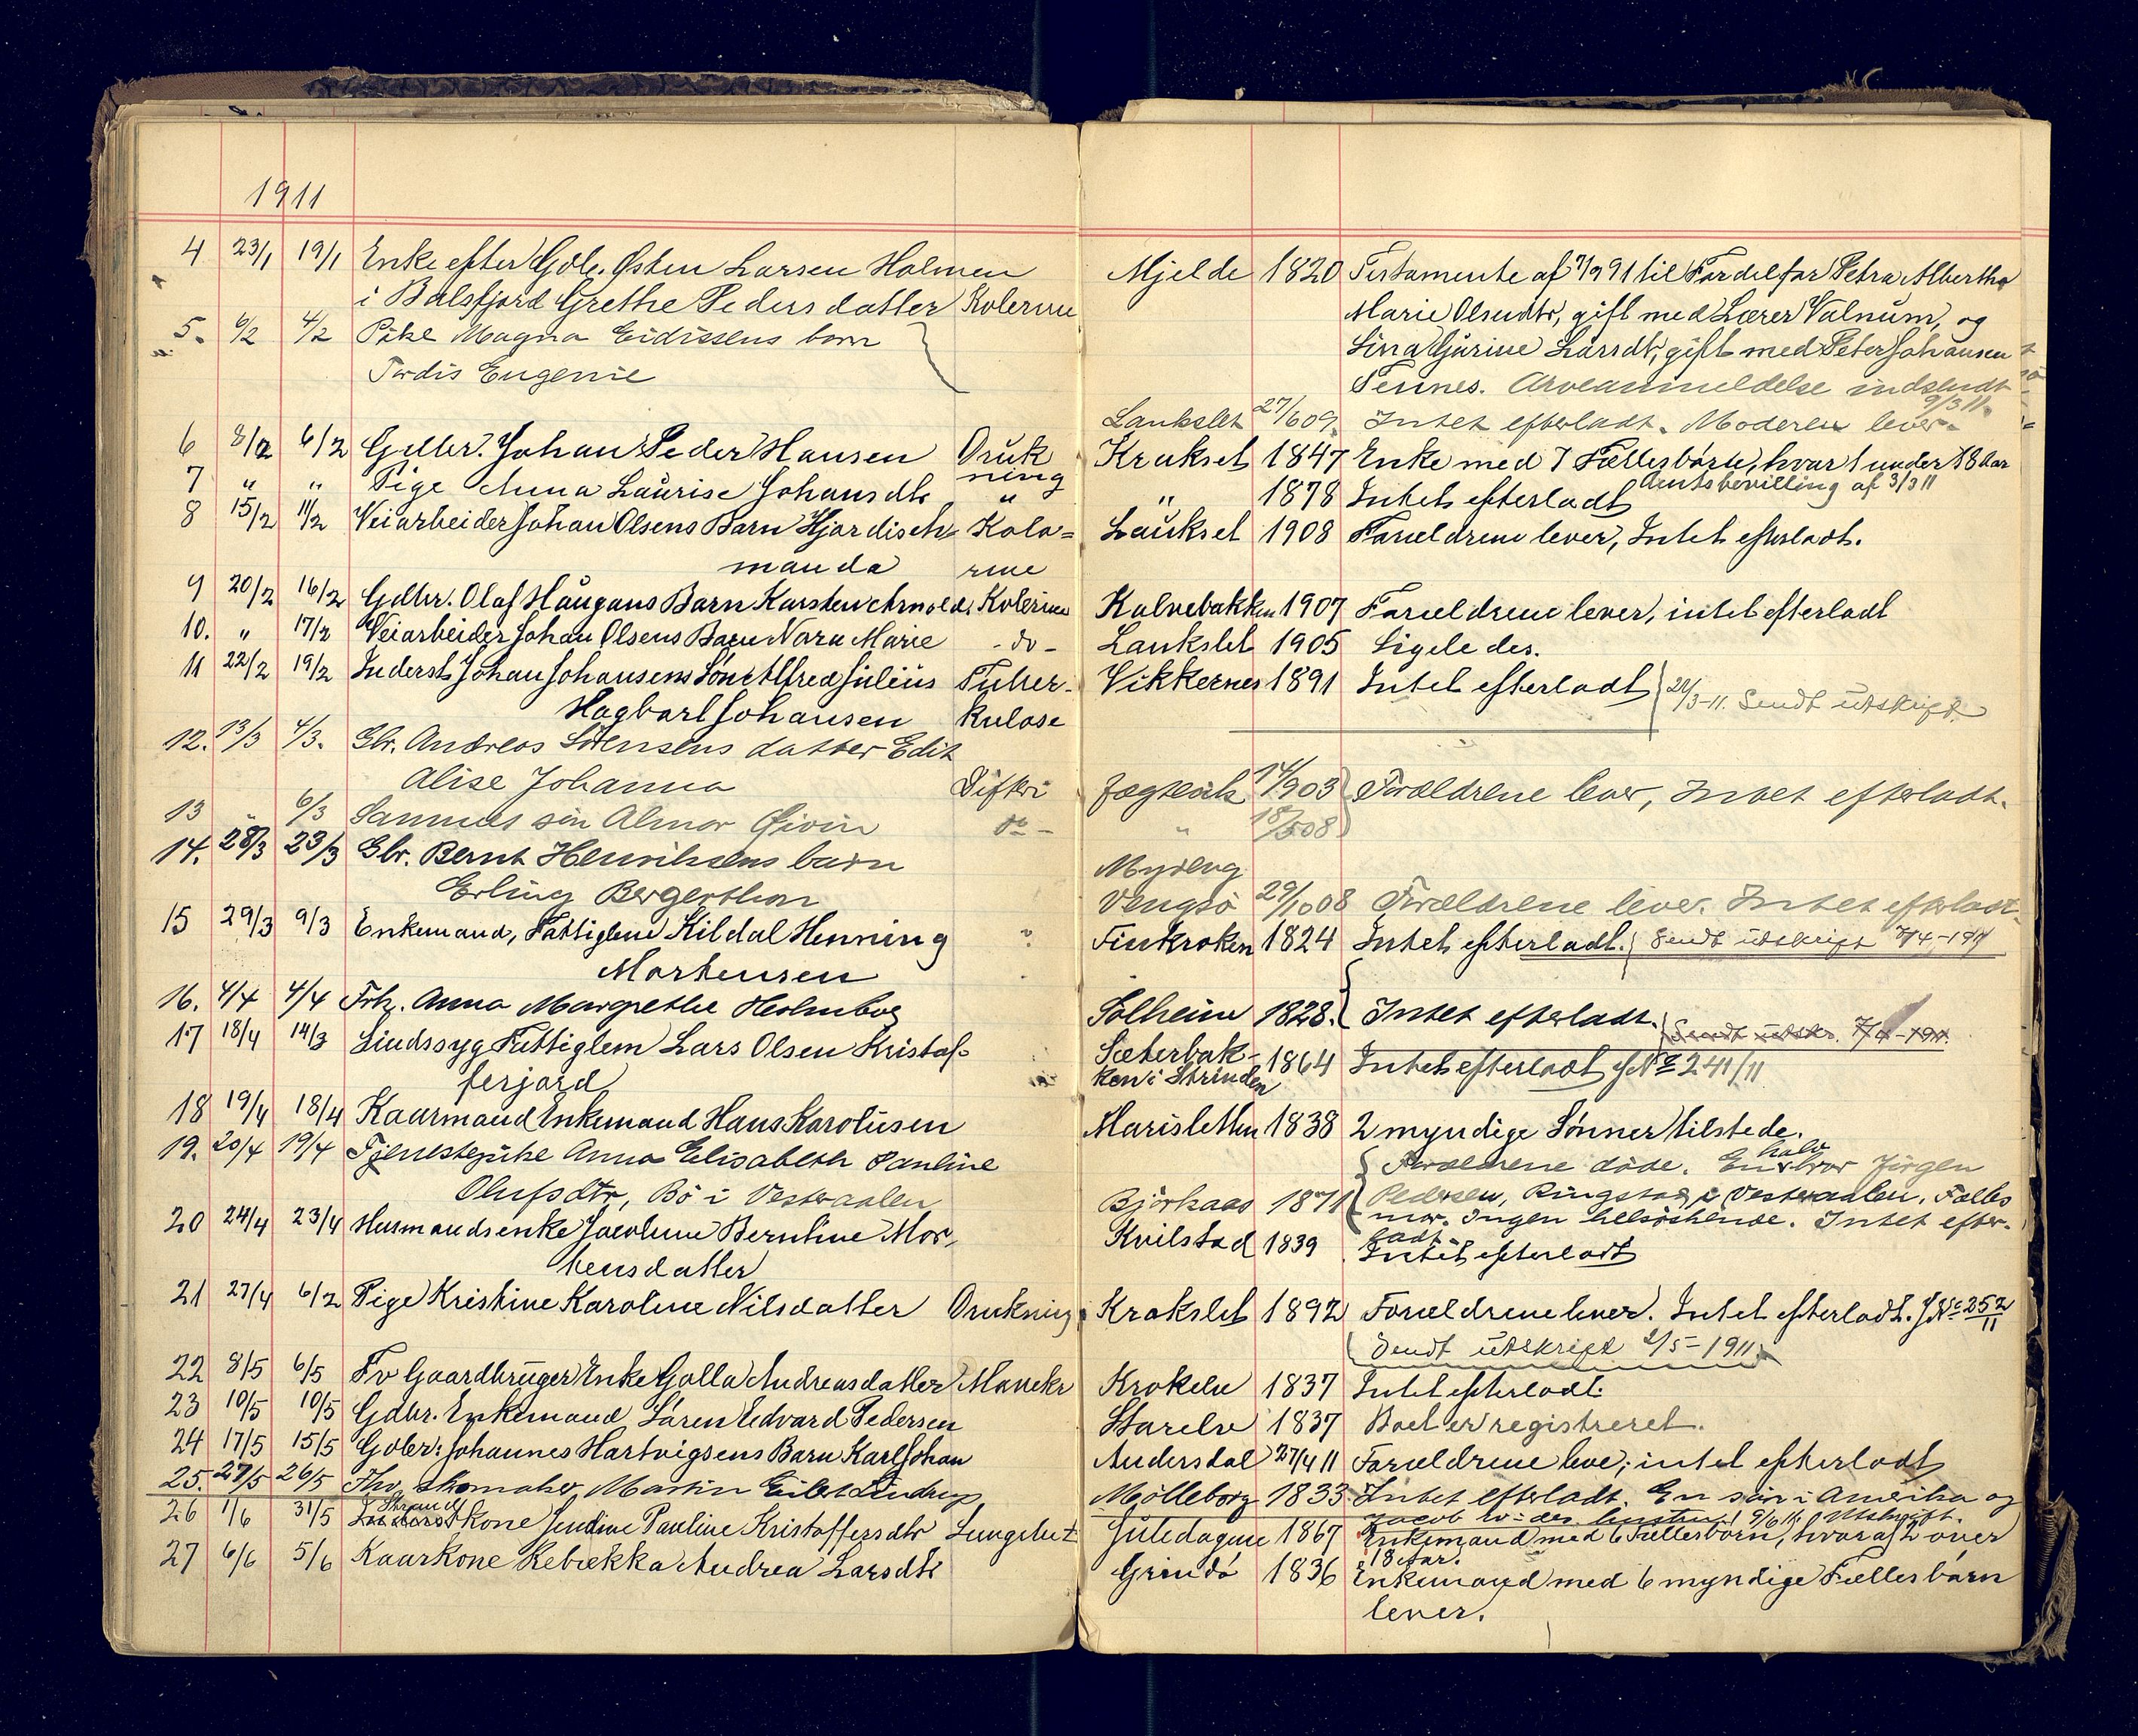 1911
4 23/1 19/1 Enke efter Gdbr. Østen Larsen Holmen
i Balsfjord Grethe Pedersdatter Kolerine
5. 6/2 4/2 Pike Magna Eidissens barn
Tordis Eugenie
6 8/2 6/2 Gdbr. Johan Peder Hansen Druk
7 " " Pige Anna Laurise Johansdtr ning "
8 15/2 11/2 Veiarbeider Johan Olsens Barn Hjordis Kolo=
manda rine
9 20/2 16/2 Gdbr. Olaf Haugans Barn Karsten Arnold. Kolerine
10. " 17/2 Veiarbeider Johan Olsens Barn Nora Marie - do -
11 22/2 19/2 Inderst Johan Johansens Søn Alfred Julius Tuber-
Hagbart Johansen kulose
12. 13/3 4/3. Gbr. Andreas Sörensens datter Edit
Alise Johanna Difteri
13 " 6/3 Sammes sön Almar Öivin do -
14. 28/3 23/3 Gbr. Bernt Henriksens barn
Erling Bergersthon
15 29/3 9/3 Enkemand, Fattiglem Kildal Henning ?
Mortensen
16. 4/4 4/4 Frk. Anna Margrethe Holmboe
17 18/4 14/3 Sindssyg Fattiglem Lars Olsen Kristof-
ferjord
18 19/4 18/4 Kaarmand Enkemand Hans Karolusen
19. 20/4 19/4 Tjenestepike Anna Elisabeth Pauline
Olufsdtr, Bö i Vesteraalen
20 24/4 23/4 Husmandsenke Jacobine Berntine Mor-
tensdatter
21 27/4 6/2 Pige Kristine Karoline Nilsdatter Drukning
22 8/5 6/5 Fv Gaardbruger Enke Golla Andreasdatter Marekr
23 10/5 10/5 Gdbr. Enkemand Søren Edvard Pedersen
24 17/5 15/5 Gdbr: Johannes Hartvigsens Barn Karl Johan
25. 27/5 26/5 Fhv. skomaker Martin Eilert Lindrup
26 1/6 31/5 Strand Inderstkone Jendine Pauline Kristoffersdtr Lungebet
27 6/6 5/6 Kaarkone Rebekka Andrea Larsdtr
Mjelde 1820 Testamente af 7/9 91 til Fordel for Petra Albertha
Marie Olsendtr, gift med Lærer Valnum, og
Lina Gjurine Larsdtr, gift med Peter Johansen
Tennes. Arveanmeldelse indsendt
9/3 11.
Laukslet 27/6 09. Intet efterladt. Moderen lever.
Krakslet 1847 Enke med 7 Fællesbørn, hvor 1 under 18 Aar
Amtsbevilling af 3/3 11
" 1878 Intet efterladt
Laukslet 1908 Forældrene lever, Intet efterladt.
Kalvebakken 1907 Forældrene lever, intet efterladt
Laukslet 1905 Ligeledes.
Vikkernes 1891 Intet efterladt 21/3-11. Sendt utskrift
Jægtvik 14/1 903 Forældrene lever, Intet efterladt.
" 18/5 08
Myreng
Vengsö 29/10 08 Forældrene lever. Intet efterladt.
Finkroken 1824 Intet efterladt. Sendt utskrift 7/4-1911
Solheim 1828. Intet efterladt. Sendt utskr. 7/4-1911.
Sæterbak-
ken i Strinden 1864 Intet efterladt J No 241/11
Marisletten 1838 2 myndige Sønner tilstede.
Forældrene döde. En halvbror Jörgen
Björkaas 1871 Pedersen, Ringstad i Vesteraalen. Fælles
mor. Ingen helsöskende. Intet efter-
ladt.
Kvilstad 1839 Intet efterladt
Krakslet 1892 Forældrene lever. Intet efterladt. J No 252/11
Sendt utskrift 2/5-1911.
Krokelv 1837 Intet efterladt.
Storelv 1837 Boet er registreret.
Andersdal 27/4 11 Forældrene leve; intet efterladt
Mölleborg 1833 Intet efterladt. En sön i Amerika og
9/6 11. Utskrift.
Juledagene 1867 Enkemand med 6 Fællesbørn, hvoraf 2 over
18 Aar.
Grindø 1836 Enkemand med 6 myndige Fællesbørn
lever.